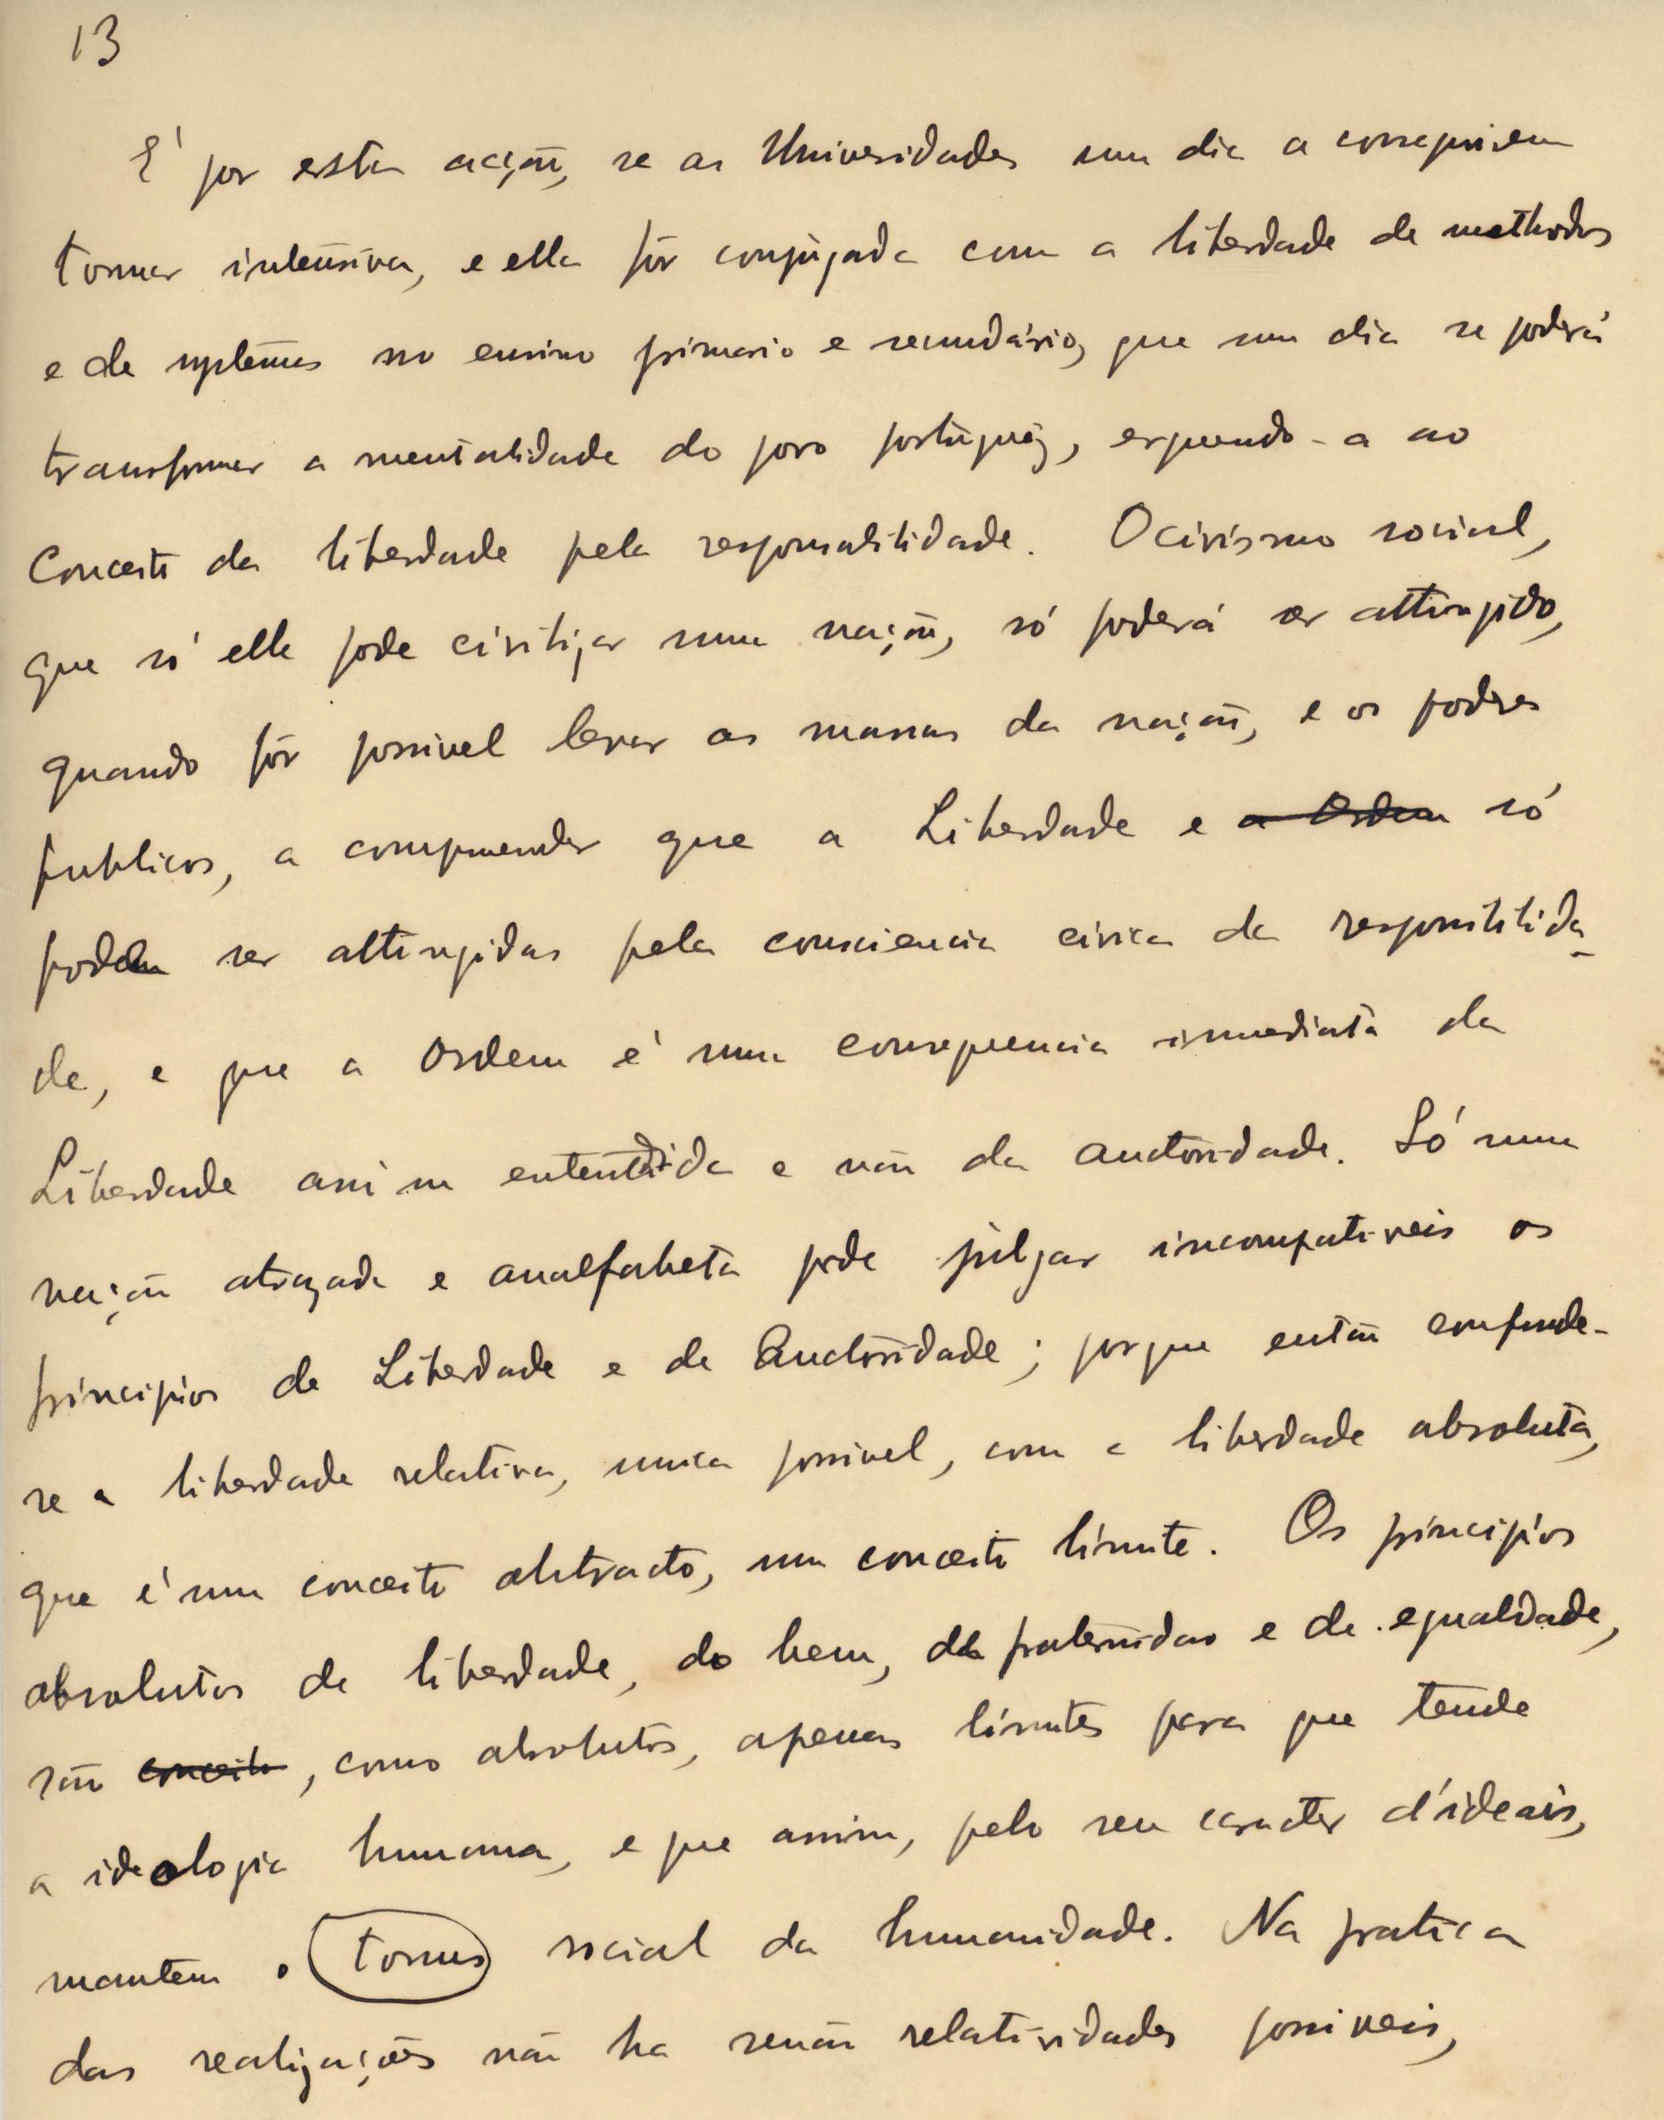 13
E' por esta acção, se as Universidades um dia a conseguirem
tornar intensiva, e ella fôr conjugada com a liberdade de methodos
e de systemas no ensino primario e secundário, que um dia se poderá
transformar a mentalidade do povo portuguêz, erguendo-a ao
Conceito da liberdade pela responsabilidade. O civismo social,
que só elle pode civilizar uma nação, só poderá ser attingido,
quando fôr possivel levar as massas da nação, e os poderes
publicos, a comprehender que a Liberdade e a Ordem só
podem ser attingidas pela consciencia civica da responsibilida-
de, e que a Ordem é uma consequencia immediata da
Liberdade assim entendida e não da auctoridade. Só uma
nação atrazada e analfabeta pode julgar incompativeis os
principios de Liberdade e de Auctoridade; porque então confunde-
se a liberdade relativa, unica possivel, com a liberdade absoluta,
que é um conceito abstracto, um conceito límite. Os principios
absolutos de liberdade, do bem, da fraternidade e de egualdade,
são conceito, como absolutos, apenas límites para que tende
a ideologia humana, e que assim, pelo seu caracter d'ideais,
mantem o tonus social da humanidade. Na pratica
das realizações não ha senão relatividades possiveis,